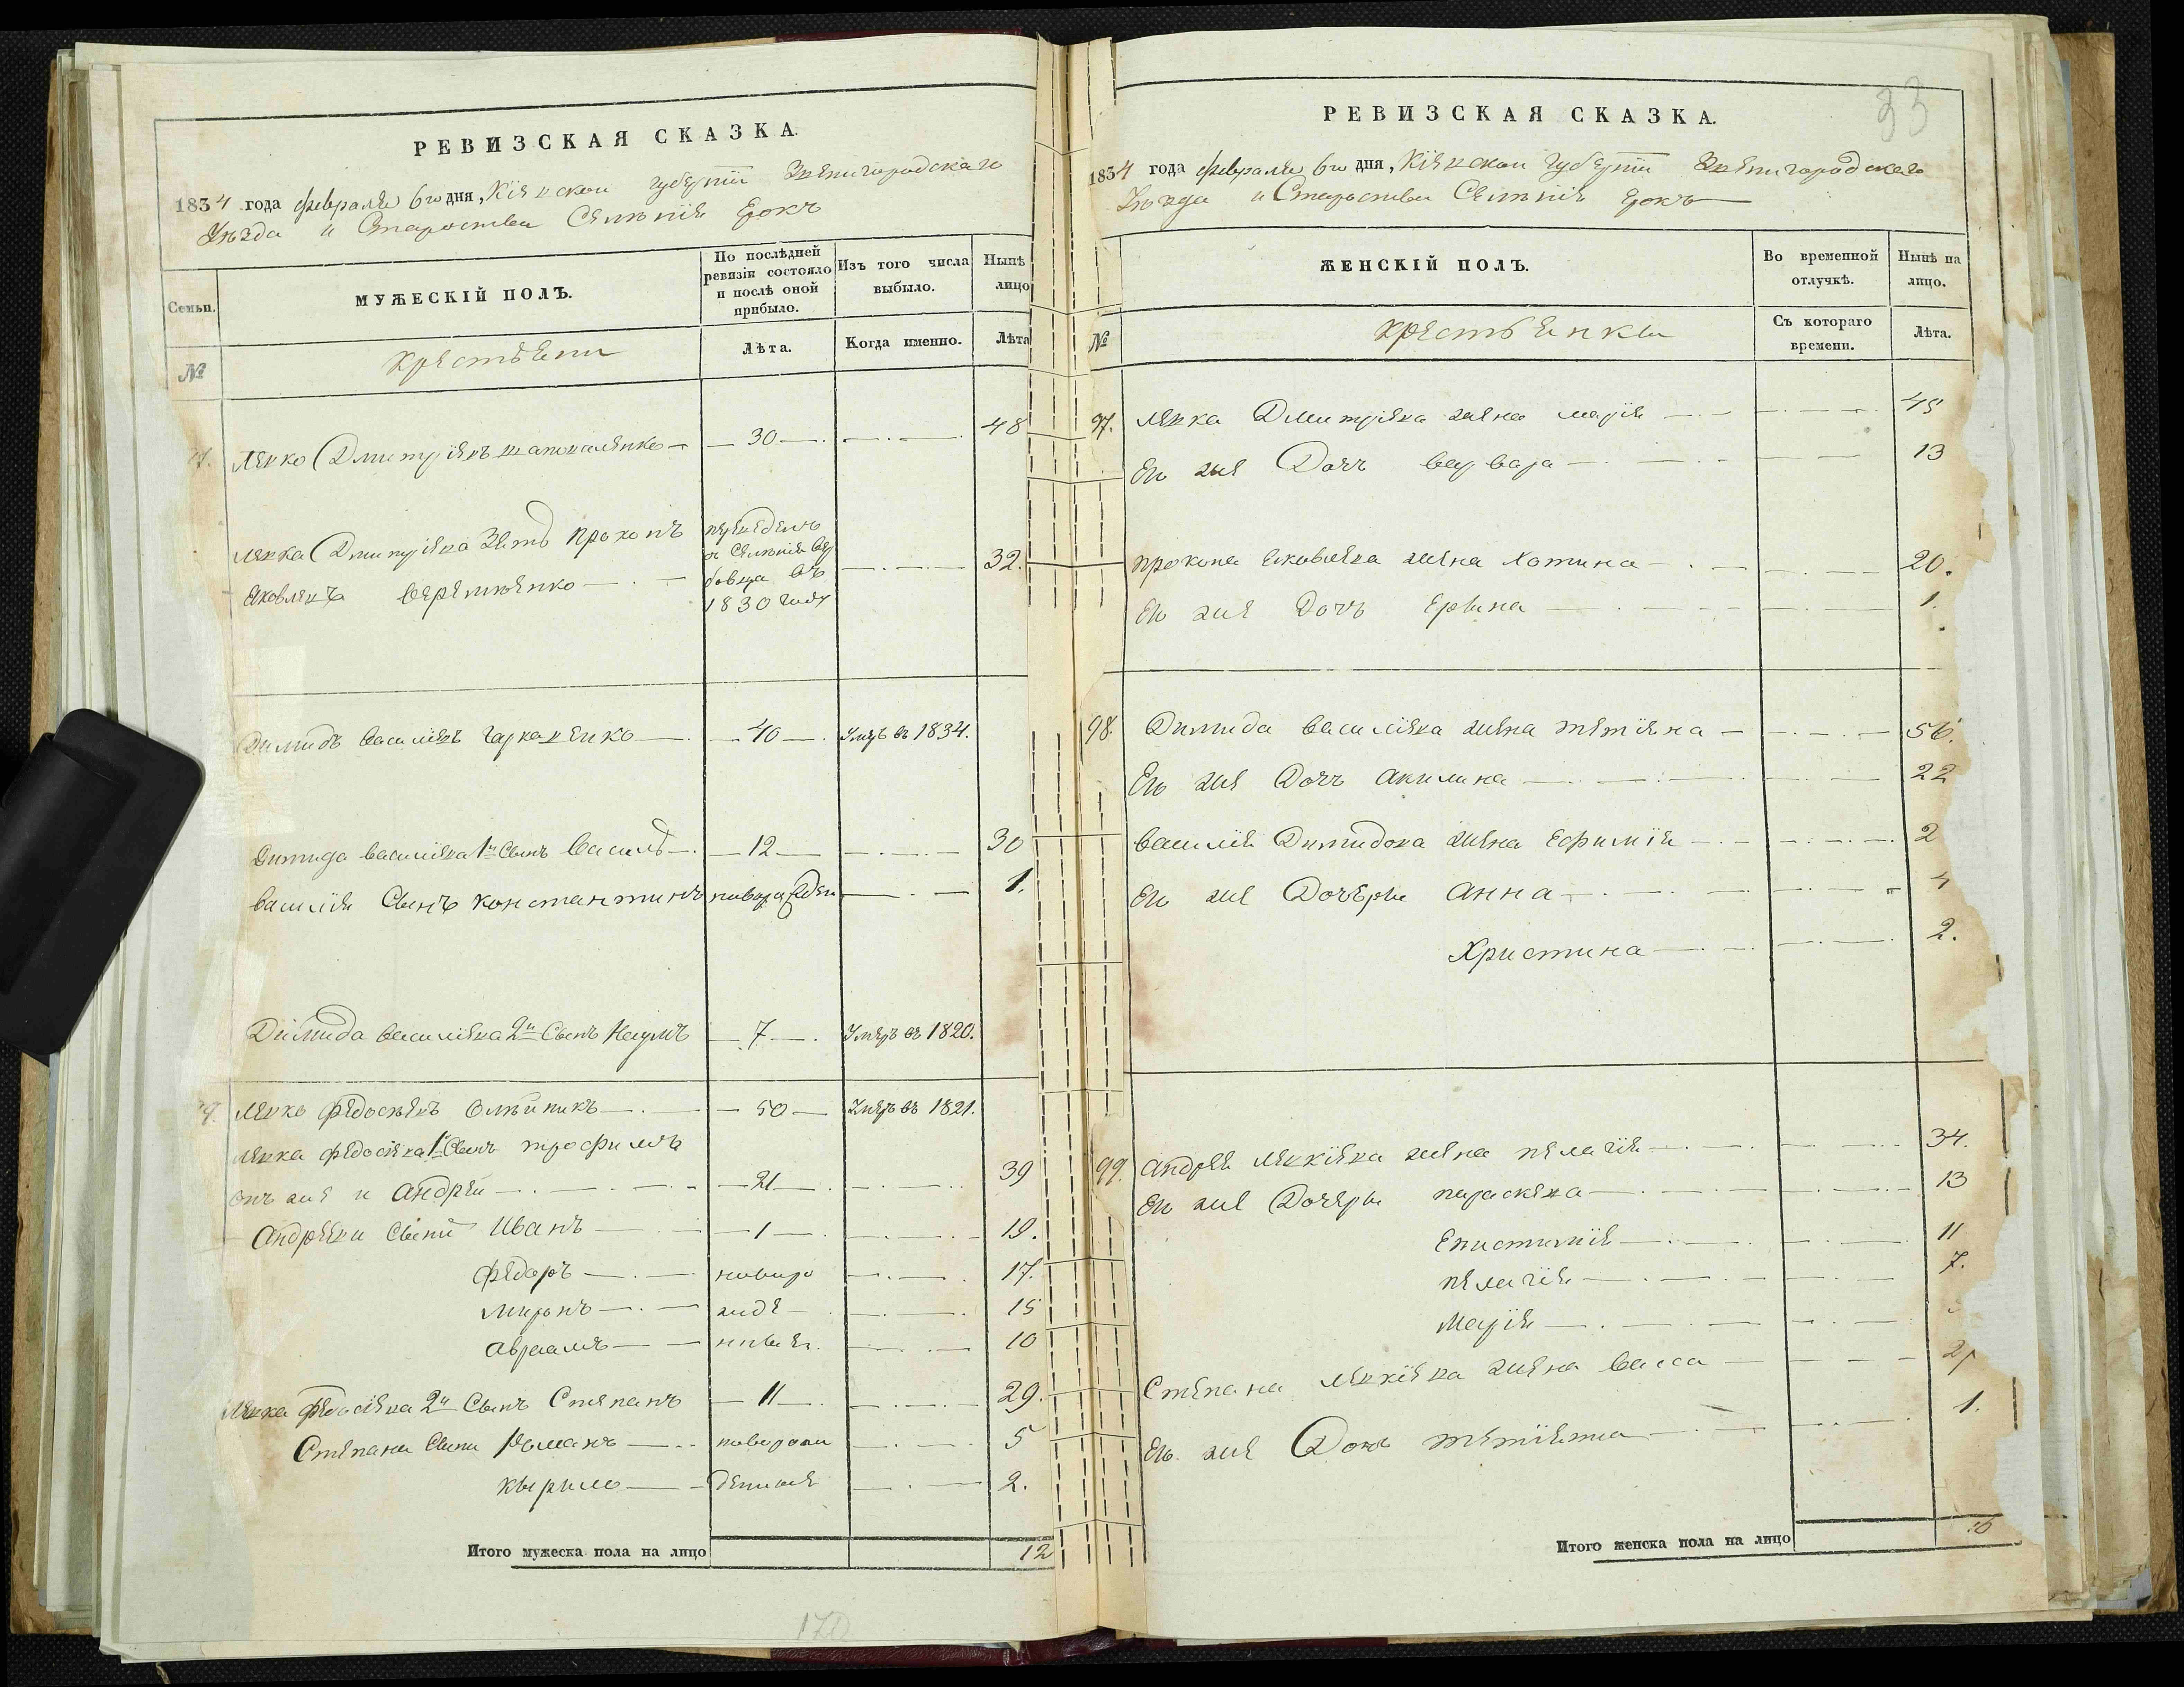 РЕВИЗСКАЯ СКАЗКА.
1834 года февраля 6го дня, Кіевской губерніи Звенигородскаго
Уѣзда и Староства Селѣнія Ерокъ
Семьи.
МУЖЕСКІЙ ПОЛЪ.
По послѣдней ревизіи состояло и послѣ оной прибыло.
Изъ того числа выбыло.
Нынѣ лицо
№
крестьяни
Лѣта.
Когда именно.
Лѣта
97. Левко Дмитріевъ — 30 — 48
Левка Дмитріева Зять Прокопъ переведенъ
Яковлевъ Веремѣенко 32.
1830 году
Димидъ Василіевъ — 40 — Умеръ въ 1834.
Димида Василіева 1й Сынъ Василь — 12 — 30
Василія Сынъ Константинъ новорожден 1.
Димида Василіева 2й Сынъ Наумъ — 7 — Умеръ въ 1820.
99. Левко Федосѣевъ Олѣйникъ — 50 — Умеръ въ 1821.
Левка Федосіева 1й Сынъ Трофимъ
онъ же и Андрей — 21 — 39
Андрѣева Сыни Иванъ — 1 — 19.
Федоръ — новоро — 17.
Миронъ — жде — 15
Авраамъ — нныя. — 10
Левка Федосіева 2й Сынъ Степанъ — 11 — 29.
Степана Сыни Романъ — новорож — 5
Кырыло — денные — 2.
Итого мужеска пола на лицо 12
170
33
РЕВИЗСКАЯ СКАЗКА.
1834 года февраля 6го дня, Кіевской губерніи Звенигородскаго
Уѣзда и Староства Селѣнія Ерокъ
№
ЖЕНСКІЙ ПОЛЪ.
Во временной отлучкѣ.
Нынѣ на лицо.
крестьянки
Съ котораго времени.
Лѣта.
97. Левка Дмитріева жена Марія — 45
Его же Дочь Варвара — 13
Прокопа Яковлева жена Хотина — 20.
Его же Дочь Ерина — 1.
98. Димида Василіева жена Тетіяна — 56.
Его же Дочь Акилина — 22
Василія Димидова жена Ефимія — 2
Его же Дочери Анна — 4
Христина — 2.
99. Андрея Левкіева жена Пелагія — 34.
Его же Дочери Параскева — 13
Епистимія — 11
Пелагія — 7.
Марія
Степана Левкіева жена Васса — 2
Его же Дочь Тетіяна — 1.
Итого женска пола на лицо